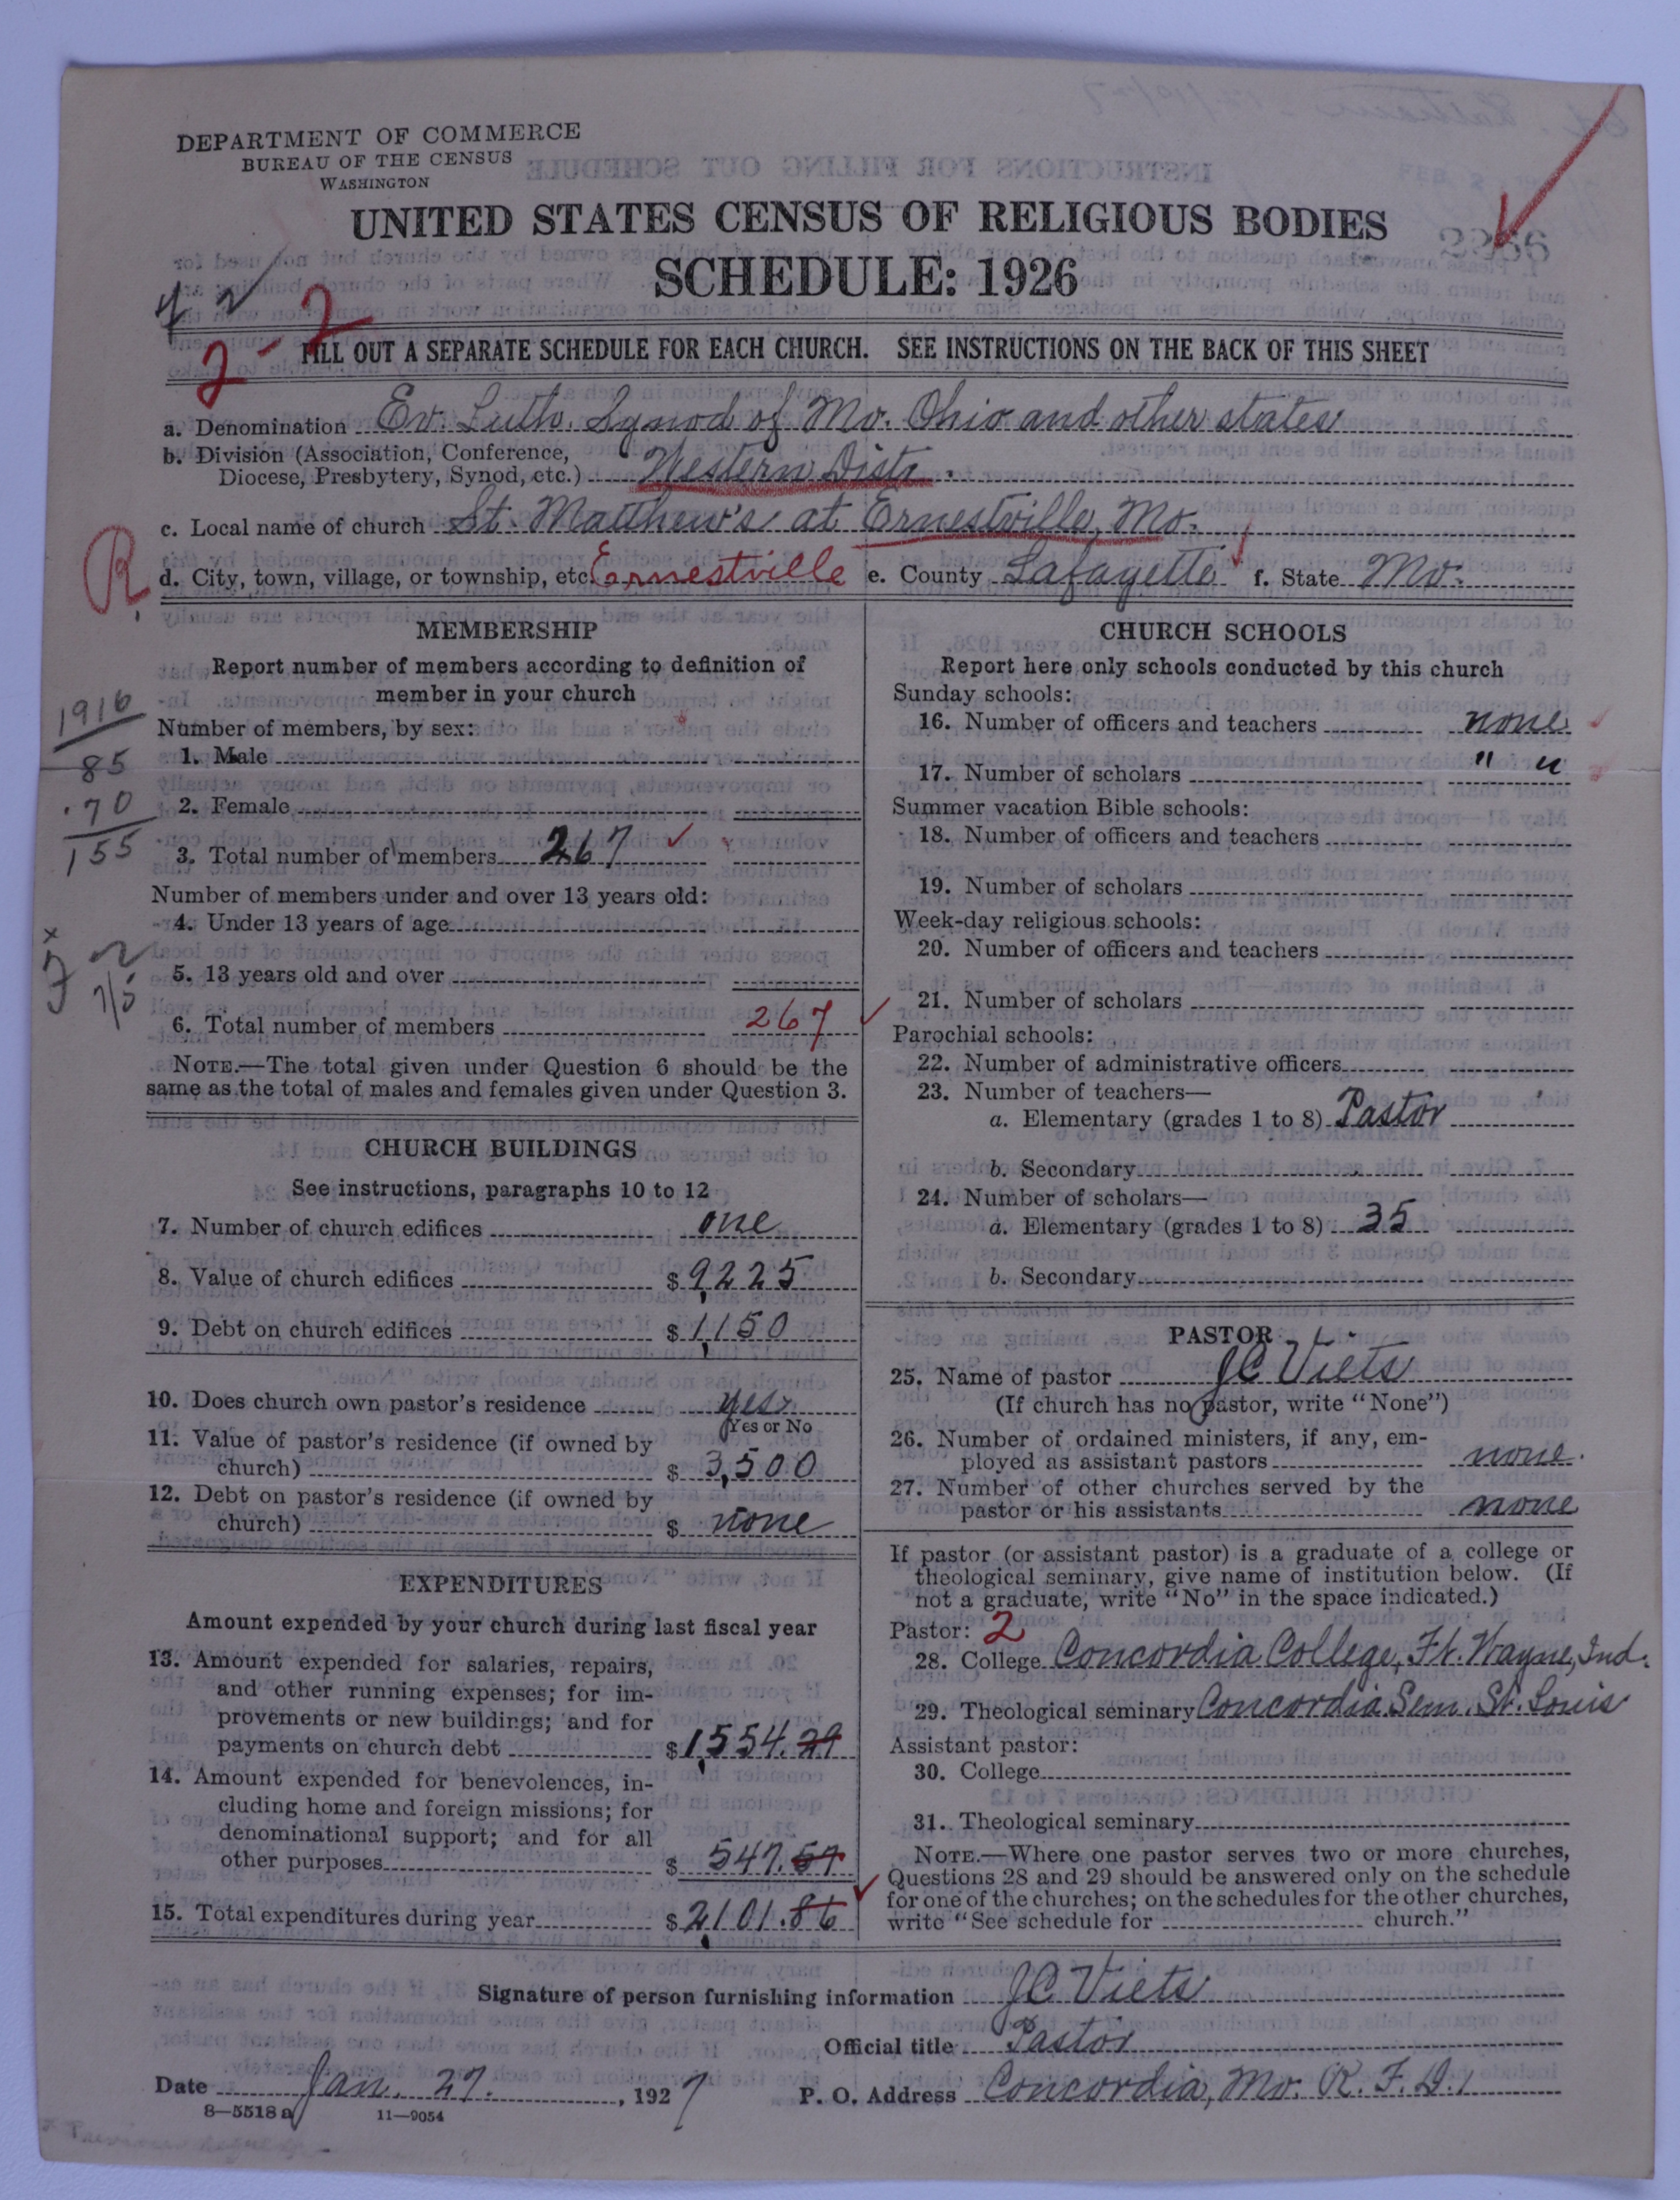 DEPARTMENT OF COMMERCE
BUREAU OF THE CENSUS
WASHINGTON
UNITED STATES CENSUS OF RELIGIOUS BODIES
SCHEDULE: 1926
2-2
FILL OUT A SEPARATE SCHEDULE FOR EACH CHURCH. SEE INSTRUCTIONS ON THE BACK OF THIS SHEET
a. Denomination Ev. Luth. Synod of Mo. Ohio and other states
b. Division (Association, Conference,
Diocese, Presbytery, Synod, etc.) Western Distr.
c. Local name of church St. Matthew's at Ernestville, Mo.
R
d. City, town, village, or township, etc. Ernestville e. County Lafayette f. State Mo.
MEMBERSHIP
Report number of members according to definition of
member in your church
1916
85
70
155
Number of members, by sex:
1. Male
2. Female
3. Total number of members 267
Number of members under and over 13 years old:
4. Under 13 years of age
5. 13 years old and over
6. Total number of members 267
NOTE.—The total given under Question 6 should be the
same as the total of males and females given under Question 3.
CHURCH BUILDINGS
See instructions, paragraphs 10 to 12
7. Number of church edifices one
8. Value of church edifices $ 9,225
9. Debt on church edifices $ 1,150
10. Does church own pastor's residence yes
Yes or No
11. Value of pastor's residence (if owned by
church) $ 3,500
12. Debt on pastor's residence (if owned by
church) $ none
EXPENDITURES
Amount expended by your church during last fiscal year
13. Amount expended for salaries, repairs,
and other running expenses; for im-
provements or new buildings; and for
payments on church debt $ 1,554.29
14. Amount expended for benevolences, in-
cluding home and foreign missions; for
denominational support; and for all
other purposes $ 547.57
15. Total expenditures during year $ 2,101.86
CHURCH SCHOOLS
Report here only schools conducted by this church
Sunday schools:
16. Number of officers and teachers none
17. Number of scholars " "
Summer vacation Bible schools:
18. Number of officers and teachers
19. Number of scholars
Week-day religious schools:
20. Number of officers and teachers
21. Number of scholars
Parochial schools:
22. Number of administrative officers
23. Number of teachers—
a. Elementary (grades 1 to 8) Pastor
b. Secondary
24. Number of scholars—
a. Elementary (grades 1 to 8) 35
b. Secondary
PASTOR
25. Name of pastor JC Viets
(If church has no pastor, write "None")
26. Number of ordained ministers, if any, em-
ployed as assistant pastors none.
27. Number of other churches served by the
pastor or his assistants none
If pastor (or assistant pastor) is a graduate of a college or
theological seminary, give name of institution below. (If
not a graduate, write "No" in the space indicated.)
Pastor: 2
28. College Concordia College, Ft. Wayne, Ind.
29. Theological seminary Concordia Sem. St. Louis
Assistant pastor:
30. College
31. Theological seminary
NOTE.—Where one pastor serves two or more churches,
Questions 28 and 29 should be answered only on the schedule
for one of the churches; on the schedules for the other churches,
write "See schedule for church."
Signature of person furnishing information JC Viets
Official title Pastor
Date Jan. 27. , 1927 P. O. Address Concordia, Mo. R. F. D. 1
8—5518 a 11—9054